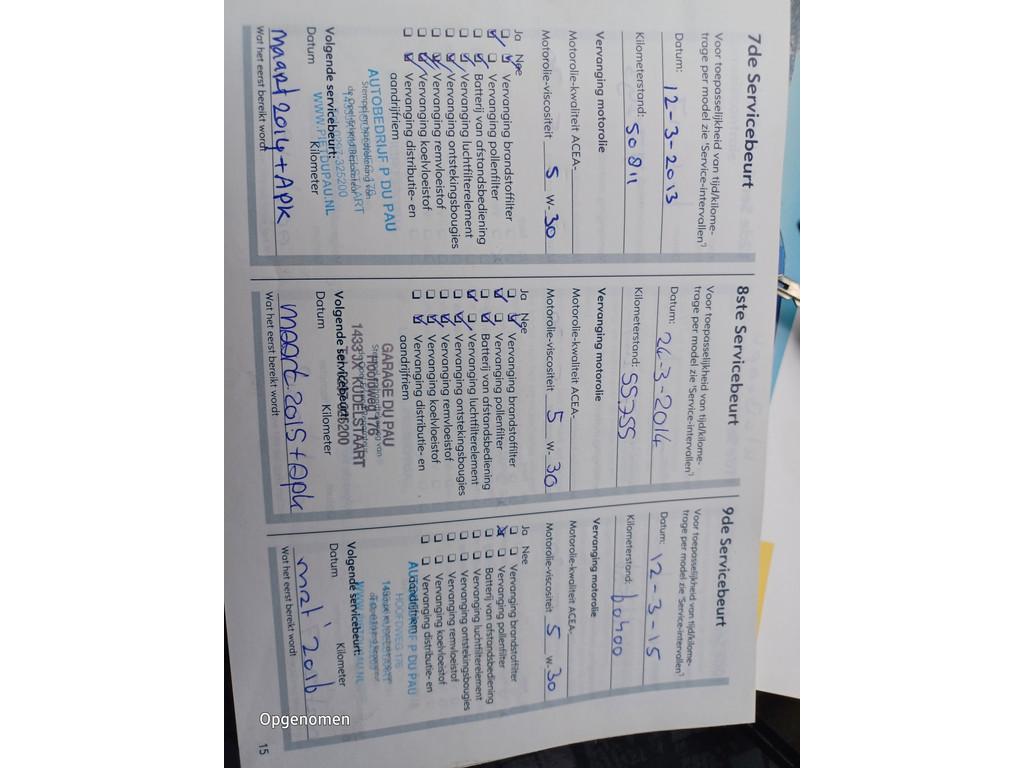 7de Servicebeurt
Voor toepasselijkheid van tijd/kilome-
trage per model zie 'Service-intervallen'¹⁾
Datum: 12-3-2013
Kilometerstand: 50811
Vervanging motorolie
Motorolie-kwaliteit ACEA-
Motorolie-viscositeit 5 W-30
Ja Nee
Vervanging brandstoffilter
Vervanging pollenfilter
Batterij van afstandsbediening
Vervanging luchtfilterelement
Vervanging ontstekingsbougies
Vervanging remvloeistof
Vervanging koelvloeistof
Vervanging distributie- en
aandrijfriem
AUTOBEDRIJF P DU PAU
WWW.PIETDUPAU.NL
Volgende servicebeurt:
Datum Kilometer
maart 2014 + Apk
Wat het eerst bereikt wordt
8ste Servicebeurt
Voor toepasselijkheid van tijd/kilome-
trage per model zie 'Service-intervallen'¹⁾
Datum: 26-3-2014
Kilometerstand: 55755
Vervanging motorolie
Motorolie-kwaliteit ACEA-
Motorolie-viscositeit 5 W-30
Ja Nee
Vervanging brandstoffilter
Vervanging pollenfilter
Batterij van afstandsbediening
Vervanging luchtfilterelement
Vervanging ontstekingsbougies
Vervanging remvloeistof
Vervanging koelvloeistof
Vervanging distributie- en
aandrijfriem
GARAGE DU PAU
Hoofdweg 176
1433 JX KUDELSTAART
Volgende servicebeurt:
Datum Kilometer
maart 2015 + Apk
Wat het eerst bereikt wordt
9de Servicebeurt
Voor toepasselijkheid van tijd/kilome-
trage per model zie 'Service-intervallen'¹⁾
Datum: 12-3-15
Kilometerstand: 60400
Vervanging motorolie
Motorolie-kwaliteit ACEA-
Motorolie-viscositeit 5 W-30
Ja Nee
Vervanging brandstoffilter
Vervanging pollenfilter
Batterij van afstandsbediening
Vervanging luchtfilterelement
Vervanging ontstekingsbougies
Vervanging remvloeistof
Vervanging koelvloeistof
Vervanging distributie- en
aandrijfriem
AUTOBEDRIJF P DU PAU
HOOFDWEG 176
Volgende servicebeurt:
Datum Kilometer
mrt' 2016
Wat het eerst bereikt wordt
15
Opgenomen